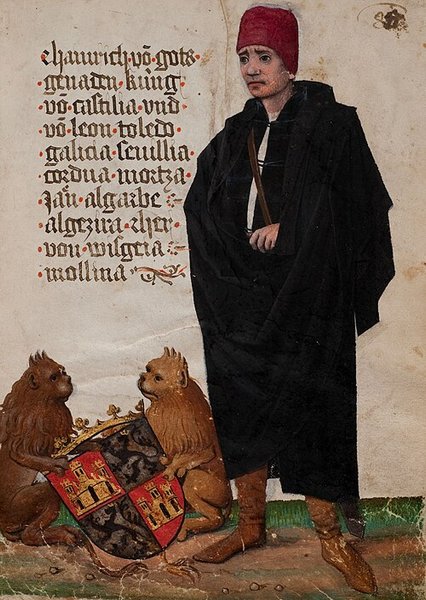 ·hainrich võ gots·
·genaden küng·
·võ castilia vnd·
·võ leon toledo·
·galicia seuillia·
·cordua mortza·
·Jaẽn algarbe
·algezira Her·
·von wisgeia
·mollina